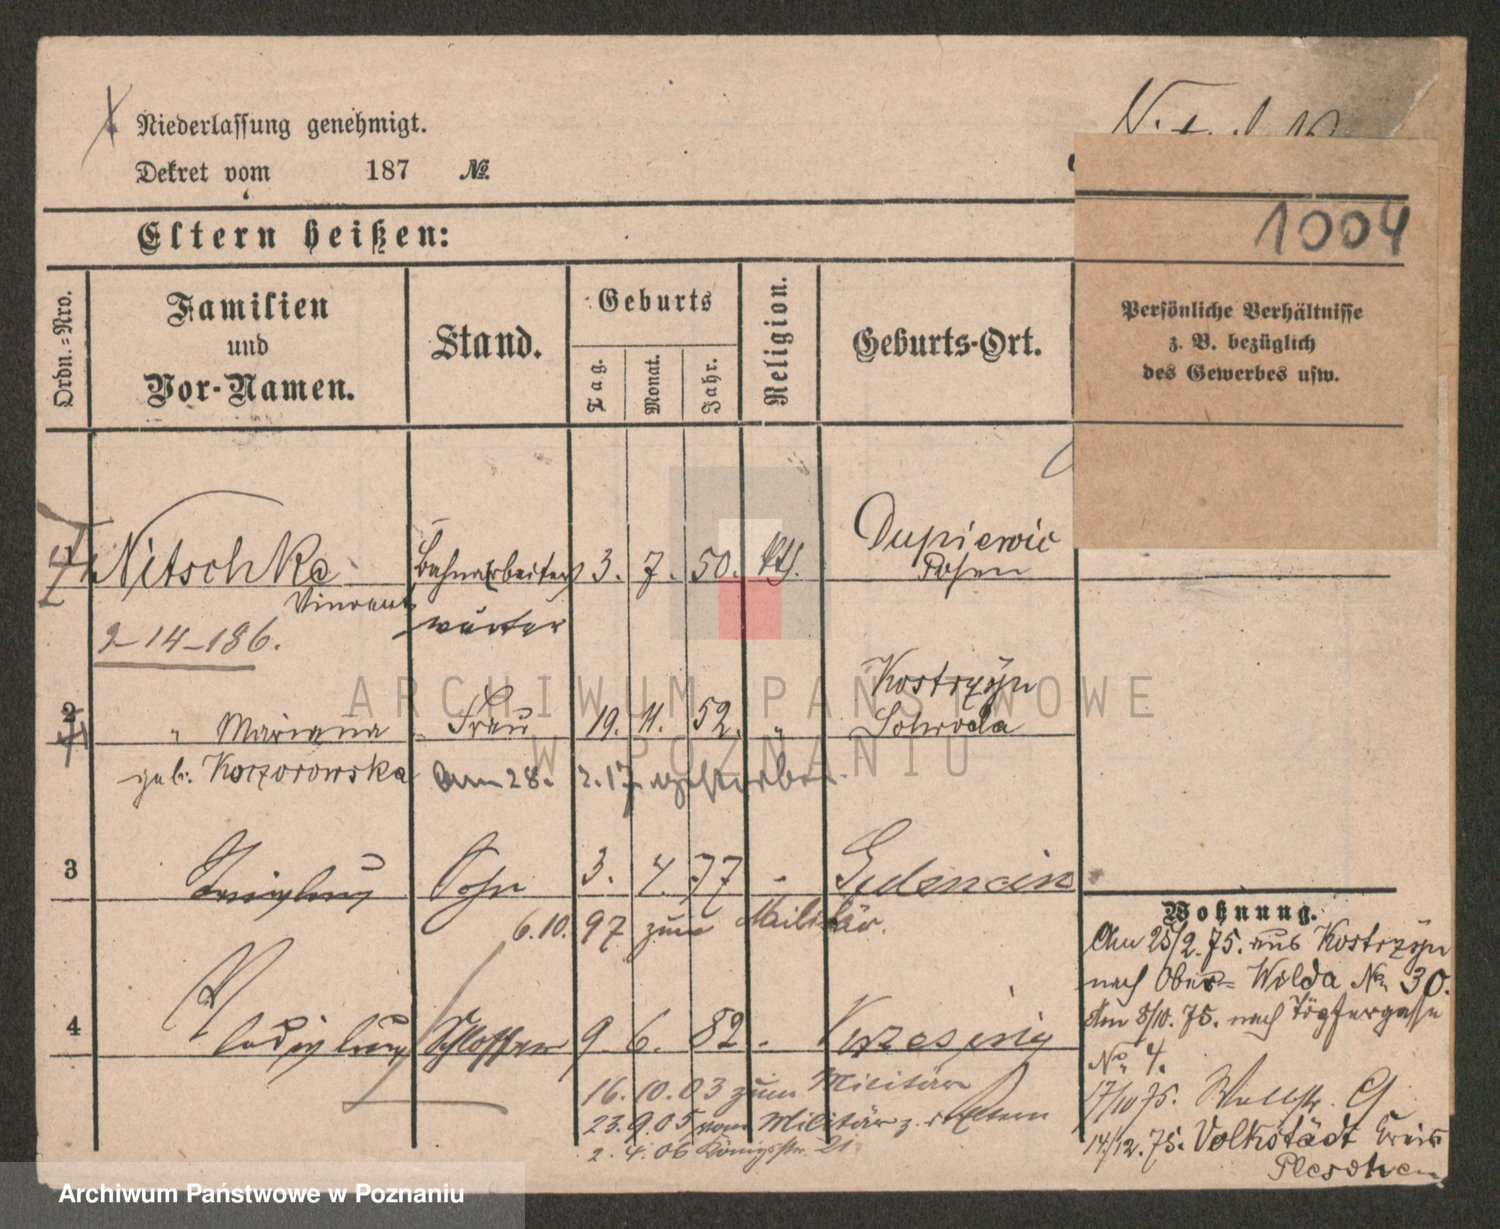 Niederlassung genehmigt.
Dekret vom 187 №.
1004
Eltern heißen:
Ordn.=Nro.
Familien
und
Vor-Namen.
Stand.
Geburts
Tag.
Monat.
Jahr.
Religion.
Geburts-Ort.
Persönliche Verhältnisse
z. B. bezüglich
des Gewerbes usw.
1 Nitschke Bahnarbeiter 3. 7. 50. kth. Dupiewic
Posen
Vincent
wärter
2-14-186.
Kostrzyn
2 " Marianna Frau 19. 11. 52. " Schroda
geb. Koczorowska Am 28. 2. 17. gestorben.
3 Sohn 3. 4. 77 -
6.10.97 zum Militär.
4 Schlosser 9. 6. 82 -
16.10.03 zum Militär
23.9.05 vom Militär z.
2.4.06 Königsstr. 21
Wohnung.
Am 25/2. 75. aus Kostrzyn
nach Ober-Wilda No. 30.
Am 8/10. 75. nach Töpfergasse
No. 4.
17/10 75. Wallstr.
14/12. 75. Volkstädt Kreis
Pleschen
ARCHIWUM PAŃSTWOWE
W POZNANIU
Archiwum Państwowe w Poznaniu